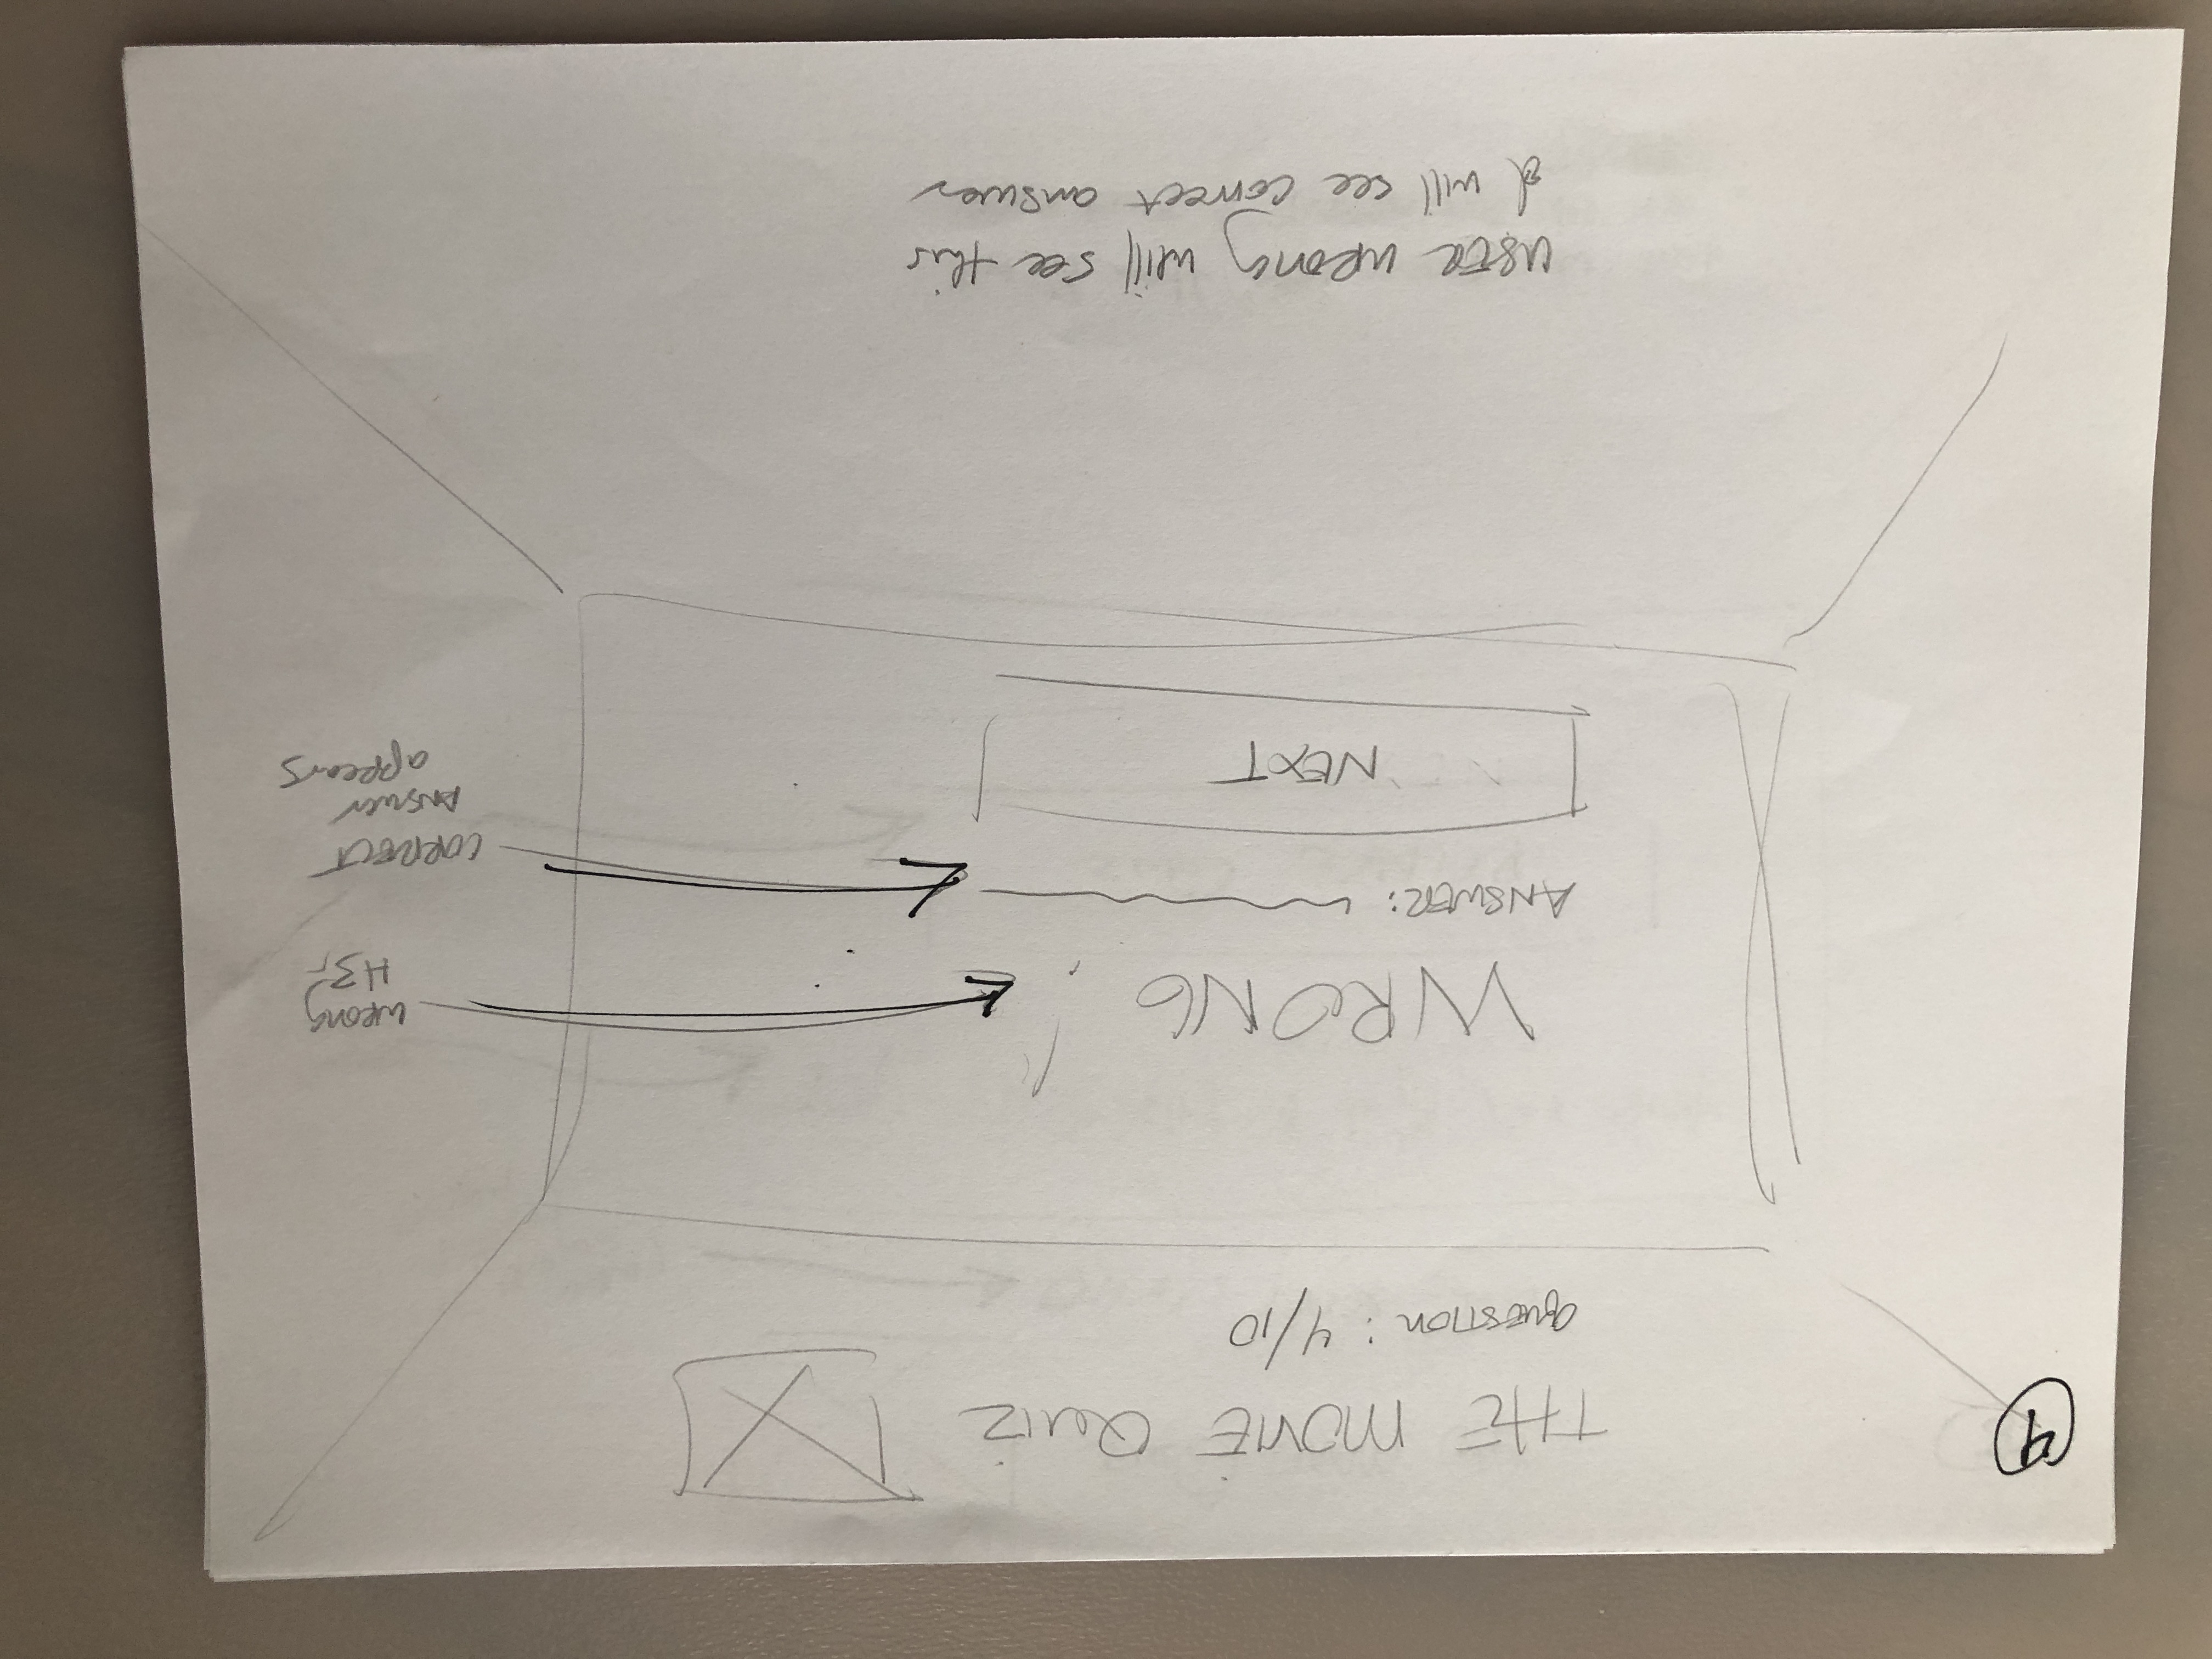 4
THE MOVIE QUIZ
QUESTION: 4/10
WRONG!
WRONG
H3
ANSWER:
CORRECT
ANSWER
appears
NEXT
USER WRONG will see this
& will see correct answer